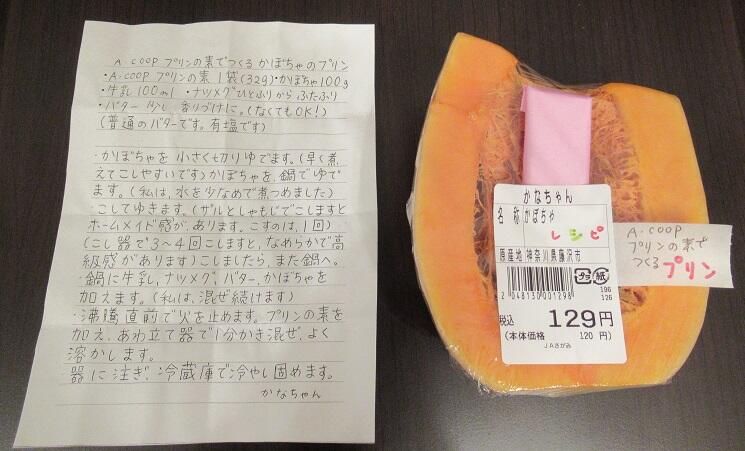 A・COOP プリンの素でつくるかぼちゃのプリン
・A・COOP プリンの素 1袋(32g)・かぼちゃ100g
・牛乳100ml ・ナツメグひとふりからふたふり
・バター 少し 香りづけに。(なくてもOK!)
(普通のバターです。有塩です)
・かぼちゃを小さく切りゆでます。(早く煮
えてこしやすいです)かぼちゃを、鍋でゆで
ます。(私は、水を少なめで煮つめました)
・こしてゆきます。(ザルとしゃもじでこしますと
ホームメイド感が、あります。こすのは、1回)
(こし器で3〜4回こしますと、なめらかで高
級感があります)こしましたら、また鍋へ。
・鍋に牛乳、ナツメグ、バター、かぼちゃを
加えます。(私は、混ぜ続けます)
・沸騰直前で火を止めます。プリンの素を
加え、あわ立て器で1分かき混ぜ、よく
溶かします。
・器に注ぎ、冷蔵庫で冷やし固めます。
かなちゃん
かなちゃん
名 称 かぼちゃ
レシピ
原産地 神奈川県藤沢市
プラ 紙
196
126
2 048130 001298
税込 129円
(本体価格 120 円)
JAさがみ
A・COOP
プリンの素で
つくる プリン